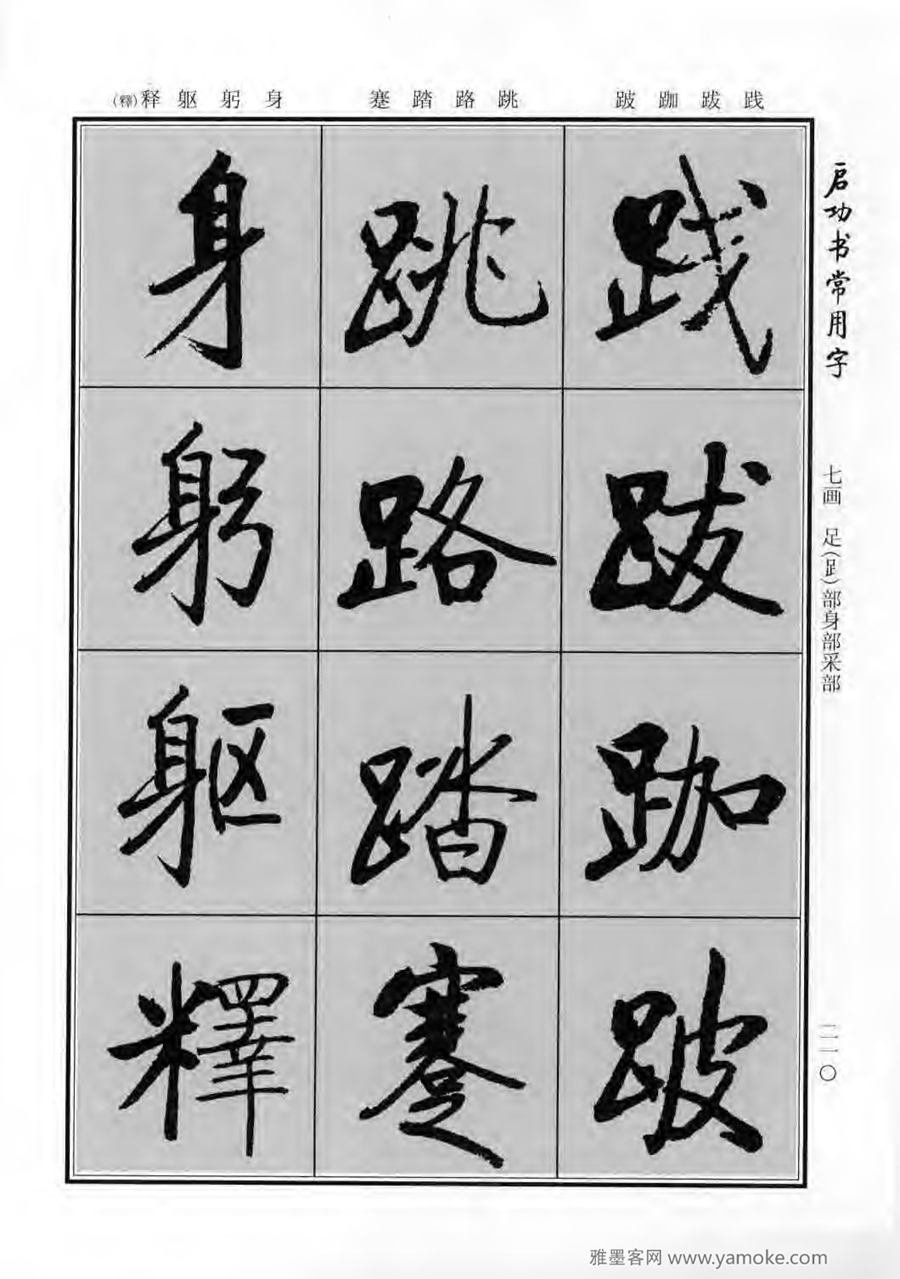 启功书常用字
七画 足(⻊)部身部采部
二一〇
践 跋 跏 跛
跳 路 踏 蹇
身 躬 躯 释(釋)
践
跋
跏
跛
跳
路
踏
蹇
身
躬
躯
釋
雅墨客网 www.yamoke.com